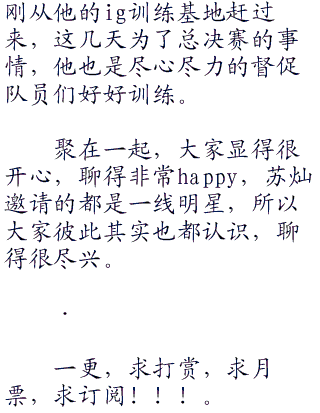 刚从他的ig训练基地赶过
来，这几天为了总决赛的事
情，他也是尽心尽力的督促
队员们好好训练。
聚在一起，大家显得很
开心，聊得非常happy，苏灿
邀请的都是一线明星，所以
大家彼此其实也都认识，聊
得很尽兴。
.
一更，求打赏，求月
票，求订阅！！！。